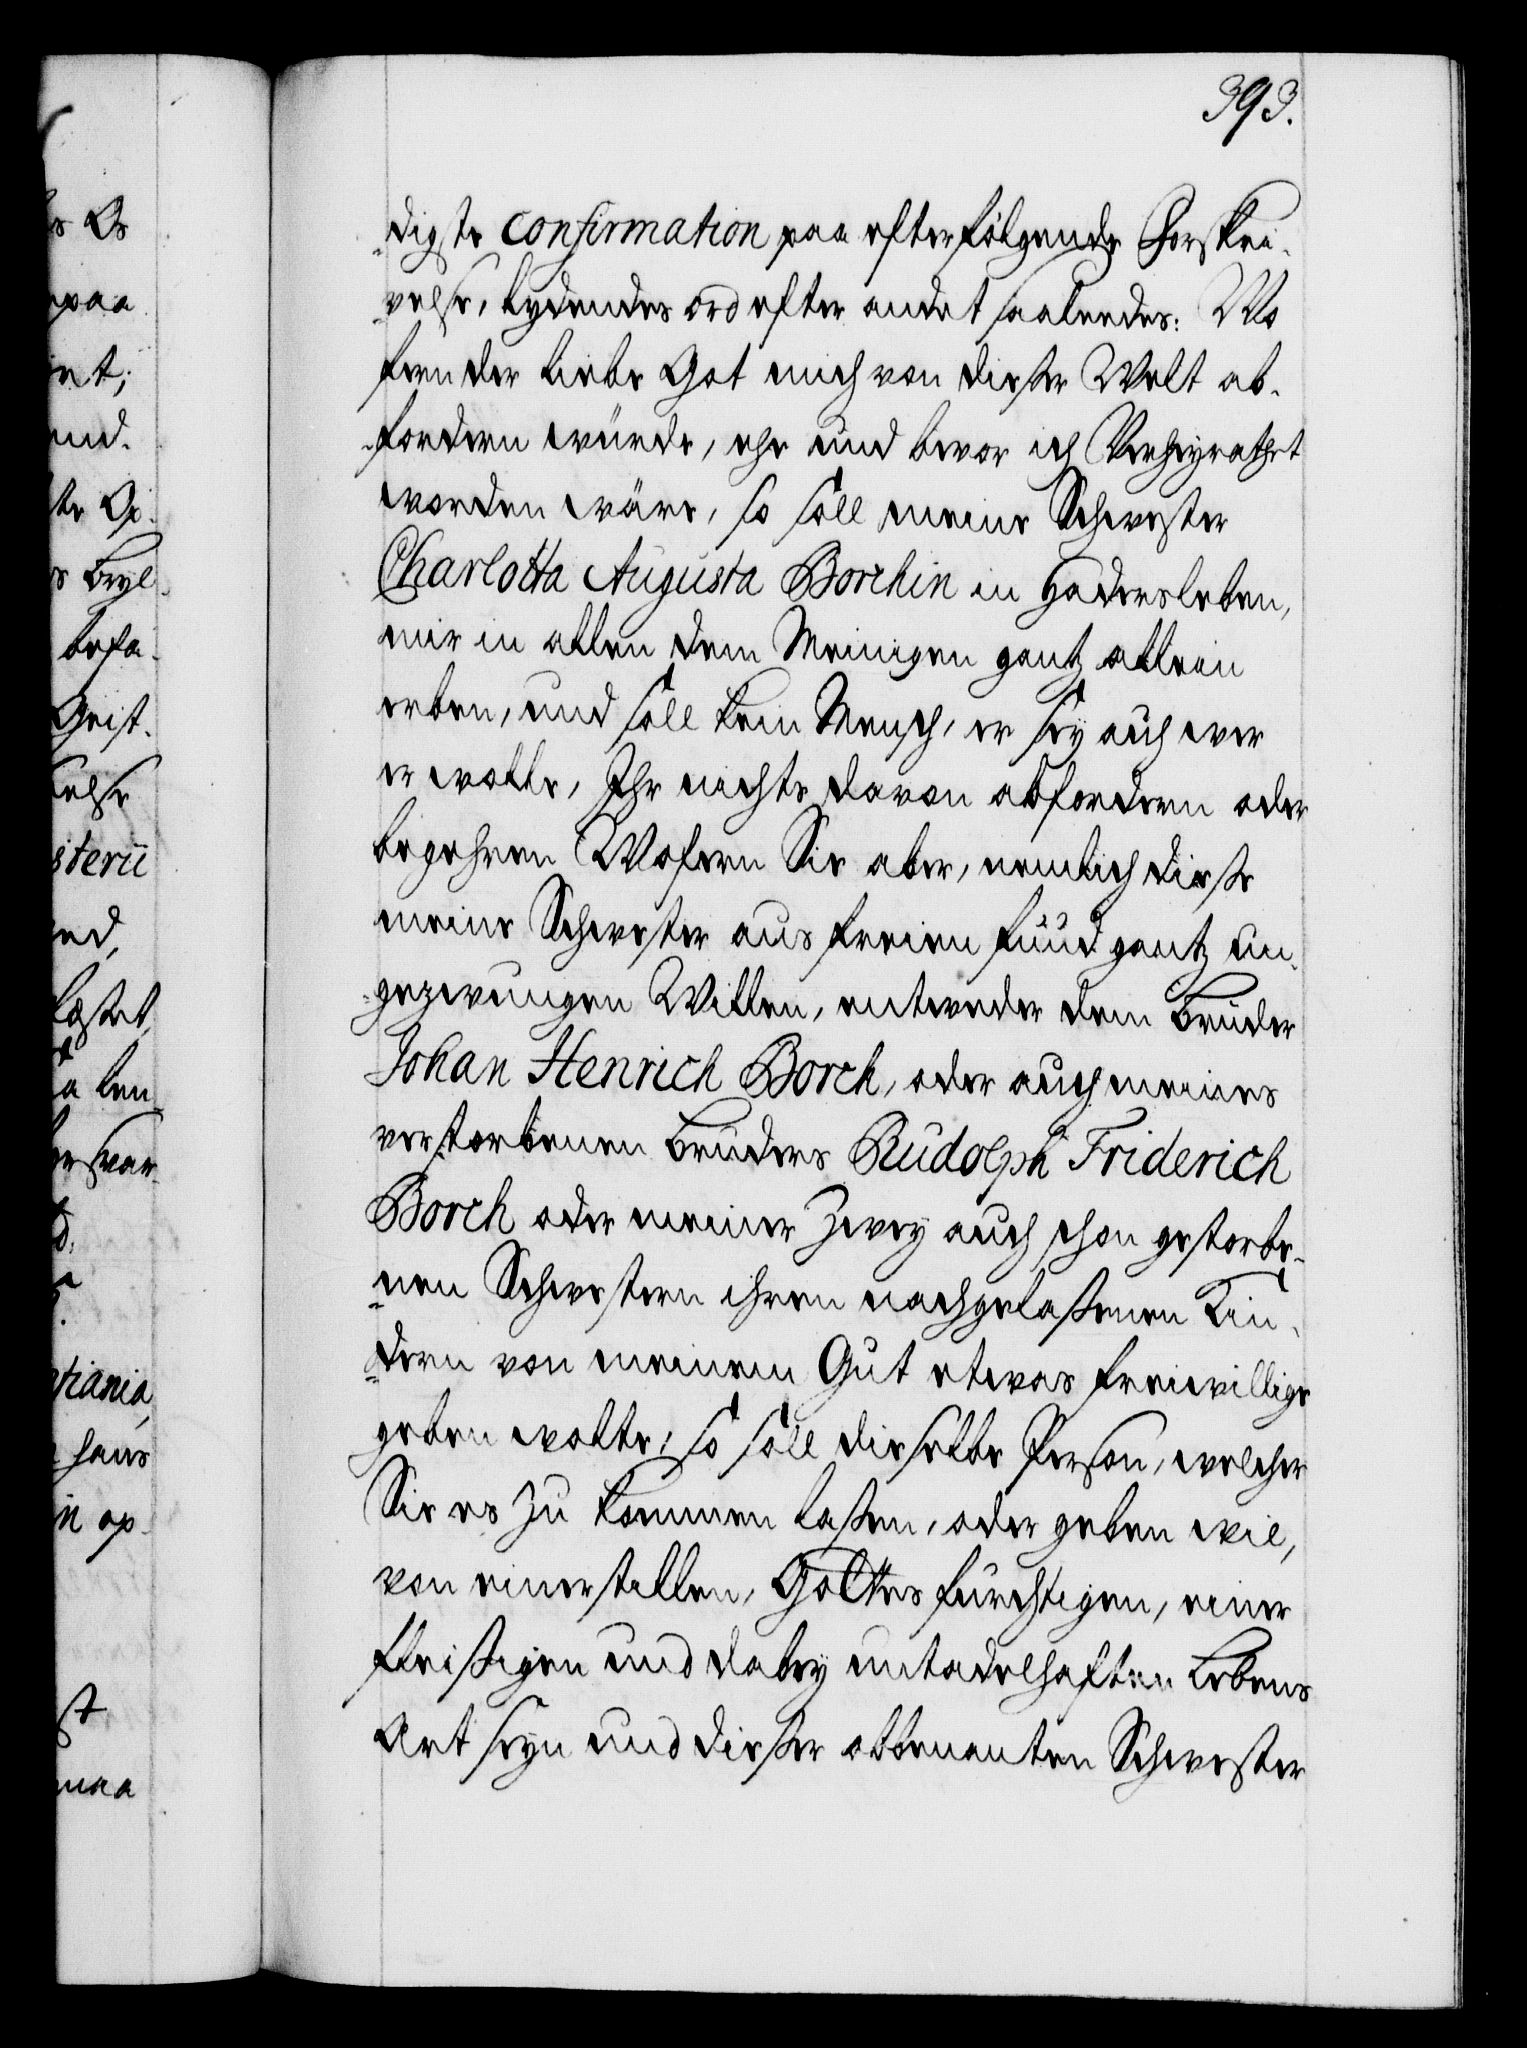 393.
digste Confirmation paa efterfølgende Forskri-
velse, lydendes ord efter andet saaledes: Wo
fern der liebe Got mich von dießer Welt ab-
fordern würde, ehe und bevor ich Verheyrathet
worden wäre, so soll meine Schwester
Charlotta Augusta Borchin in Hadersleben,
mir in allen dem Meinigen gantz allein
erben, und soll kein Mensch, er sey auch wer
er wolle, Ihr nichts davon abfordern oder
begehren Wofern Sie aber, nemlich dieße
meine Schwester aus freien fuud gantz un-
gezwungen Willen, entweder dem Bruder
Johan Henrich Borch, oder auch meines
verstorbenen Bruders Rudolph Friderich
Borch oder meiner Zwey auch schon gestorbe-
nen Schwestern ihren nachgelaßenen Kin-
dern von meinem Gut etwas freiwillige
geben wolte, so soll dieselbe Person, welcher
Sie es zu kommen laßen, oder geben wil,
von einer stillen, Gottes fürchtigen, einer
fleißigen und dabey untadelhaften Lebens
Art seyn und dießer obbenanten Schwester